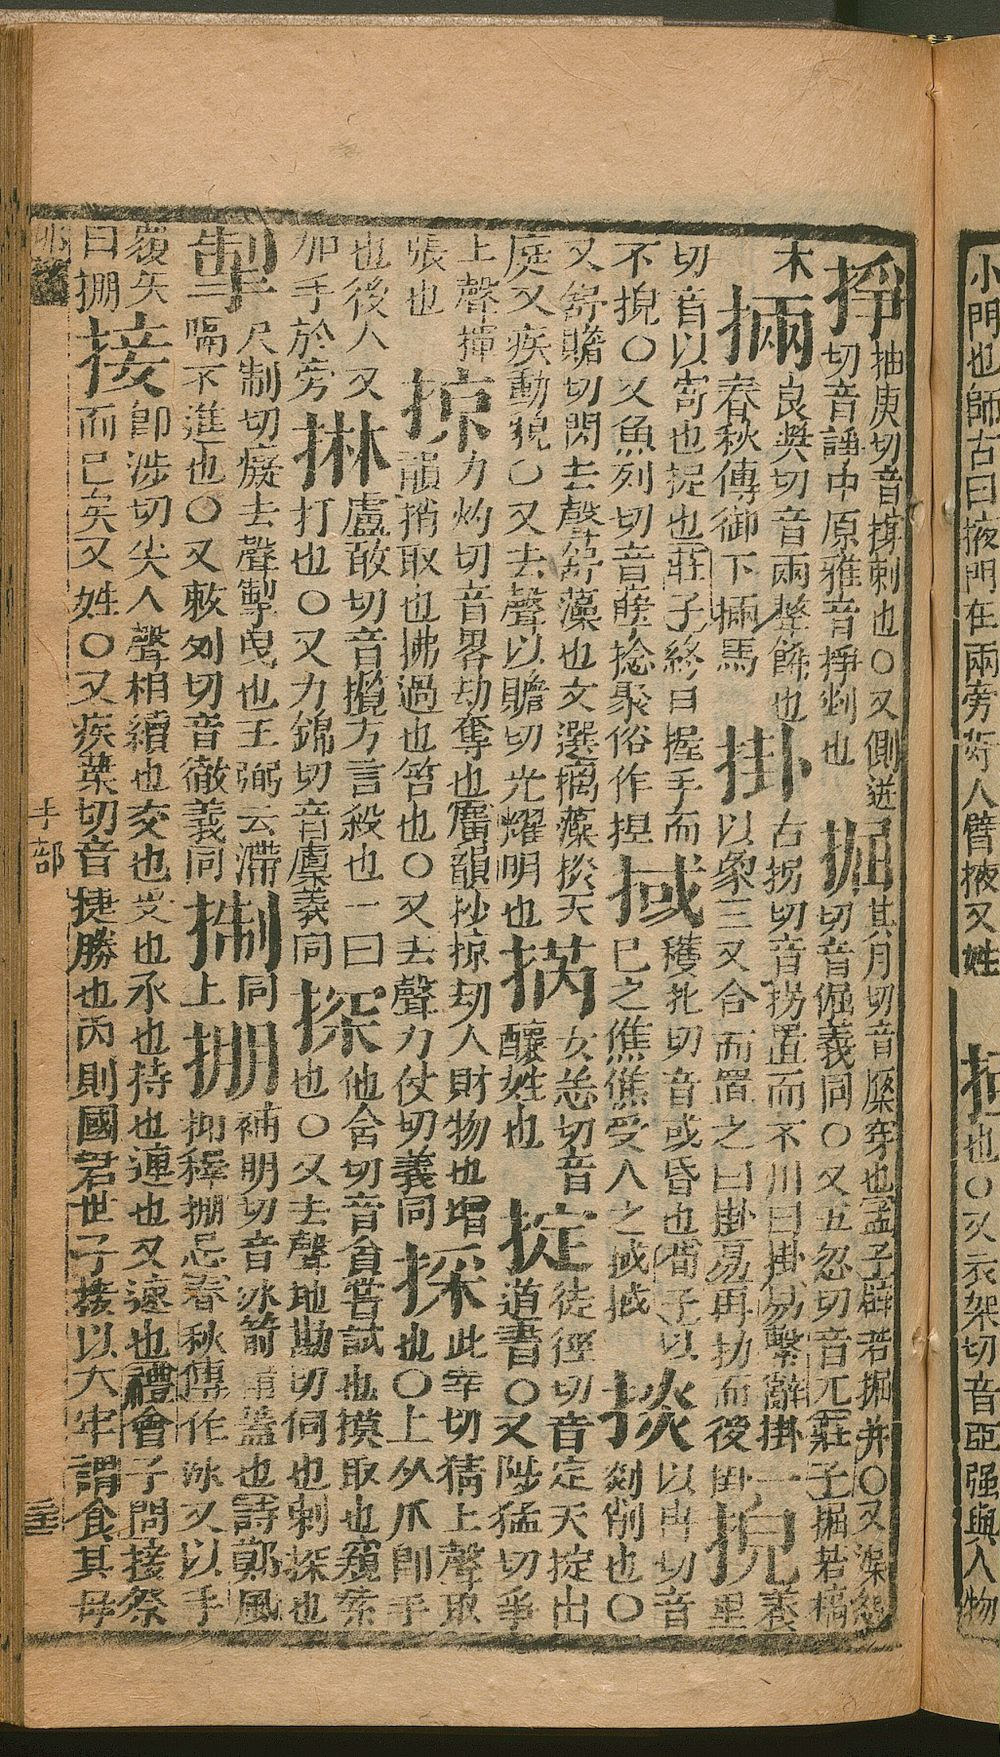 小門也師古曰掖門在兩旁 人臂掖又姓
也○又衣架切音亞强與人物
掙抽庚切音撐刺也○又側迸切音諍中原雅音掙剉也
掘其月切音橜穿也孟子辟若掘井○又渠勿切音倔義同○又五忽切音兀莊子掘若槁木
掚良奬切音兩整飾也春秋傳御下掚馬
掛古拐切音拐置而不用曰掛易繫辭掛一以象三又合而置之曰掛易再扐而後掛
掜 里切音以寄也捉也莊子終日握手而不掜○又魚列切音 捻聚俗作捏
掝穫北切音或昏也荀子以己之僬僬受人之掝掝
掞以冉切音剡削也○又舒贍切閃去聲舒藻也文選摛藻掞天庭又疾動貌○又去聲以贍切光耀明也
掿女恙切音釀姓也
掟徒徑切音定天掟出道書○又陟猛切爭上聲揮張也
掠力灼切音畧劫奪也廣韻抄掠劫人財物也增韻捎取也拂過也笞也○又去聲力仗切義同
採此宰切猜上聲取也○上从爪即手也後人又加手於旁
㨆盧敢切音攬方言殺也一曰打也○又力錦切音廩義同
探他含切音貪嘗試也摸取也窺索也○又去聲地勘切伺也刺探也
掣尺制切癡去聲掣曳也王弼云滯隔不進也○又敕列切音徹義同
㨅同上
掤補明切音冰箭筩蓋也詩鄭風抑釋掤忌春秋傳作冰又以手覆矢曰掤
接即涉切尖入聲相續也交也受也承也持也連也又速也禮會子問接祭而已矣又姓○又疾葉切音捷勝也內則國君世子接以大牢謂食其母
手部